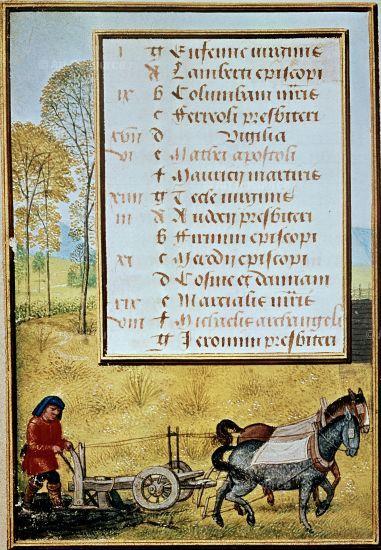 i g Eufemie virginis
A Lamberti episcopi
ix b Columbani mris
c Ferioli presbiteri
xvii d Vigilia
vi e Mathei apostoli
f Mauricij martiris
xiiii g Tecle virginis
iii A presbiteri
b Firmini episcopi
xi c episcopi
d Cosme et damiani
xix e Marcialis mris
viii f Michaelis archangeli
g Jeronimi presbiteri